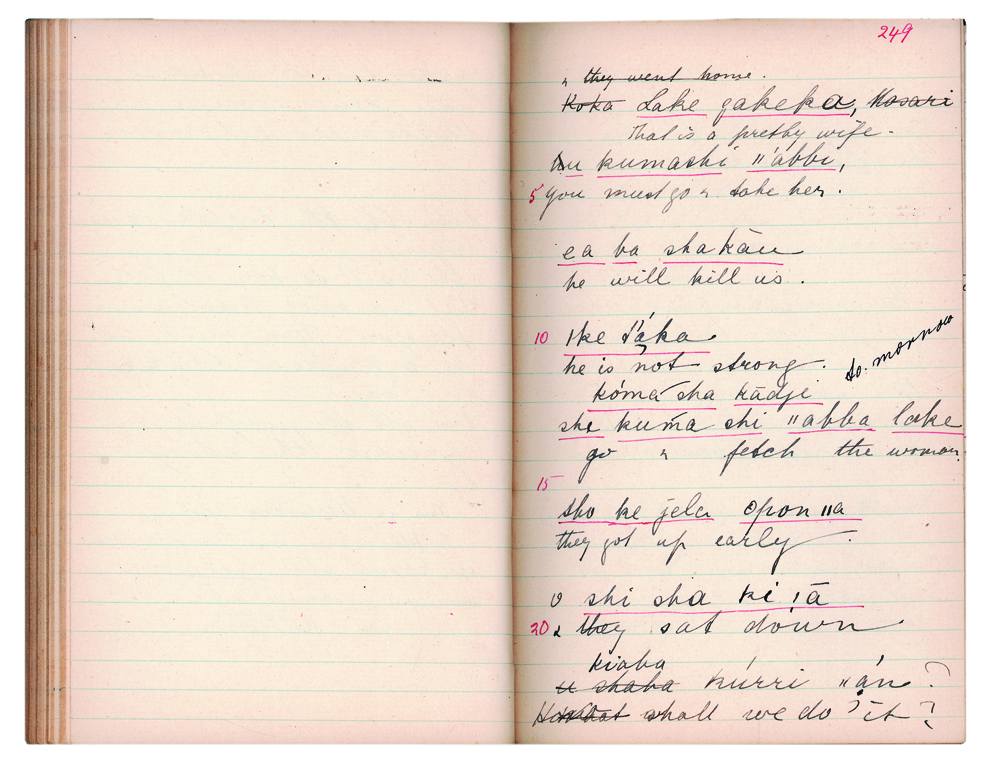 249
& they went home.
Koka Lake gakeka, Kasari
That is a pretty wife.
hu kumashi ǁabbi,
5 you must go & take her.
ea ba shakāu
he will kill us.
10 ǀke ǁáka
he is not strong.
to. morrow
kómá sha kādje
she kuma shi ǁabba lake
go & fetch the woman.
15
sho ke jela opon ǁa
they got up early
shi sha ki ǃā
20 & they sat down
kiaba
u shaba kúrri ǁán?
What shall we do ? it ?